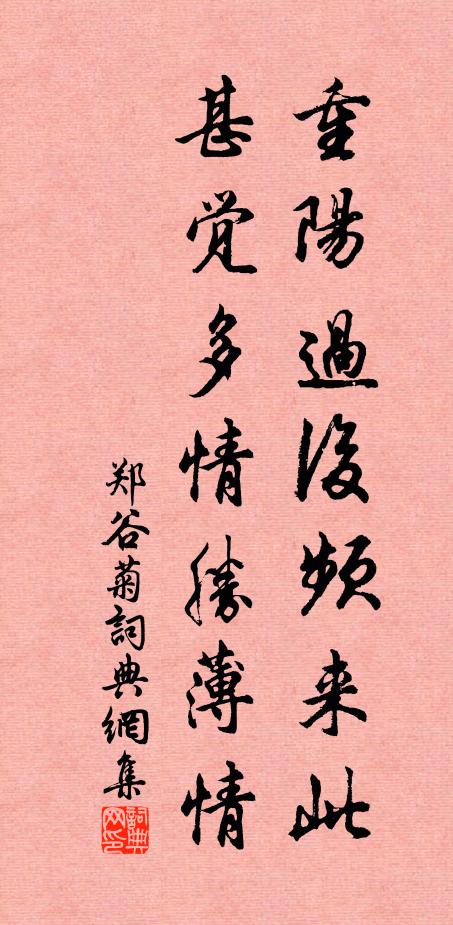 重陽過後频来此
甚觉多情勝薄情
郑谷菊詞典網集
詞典网印